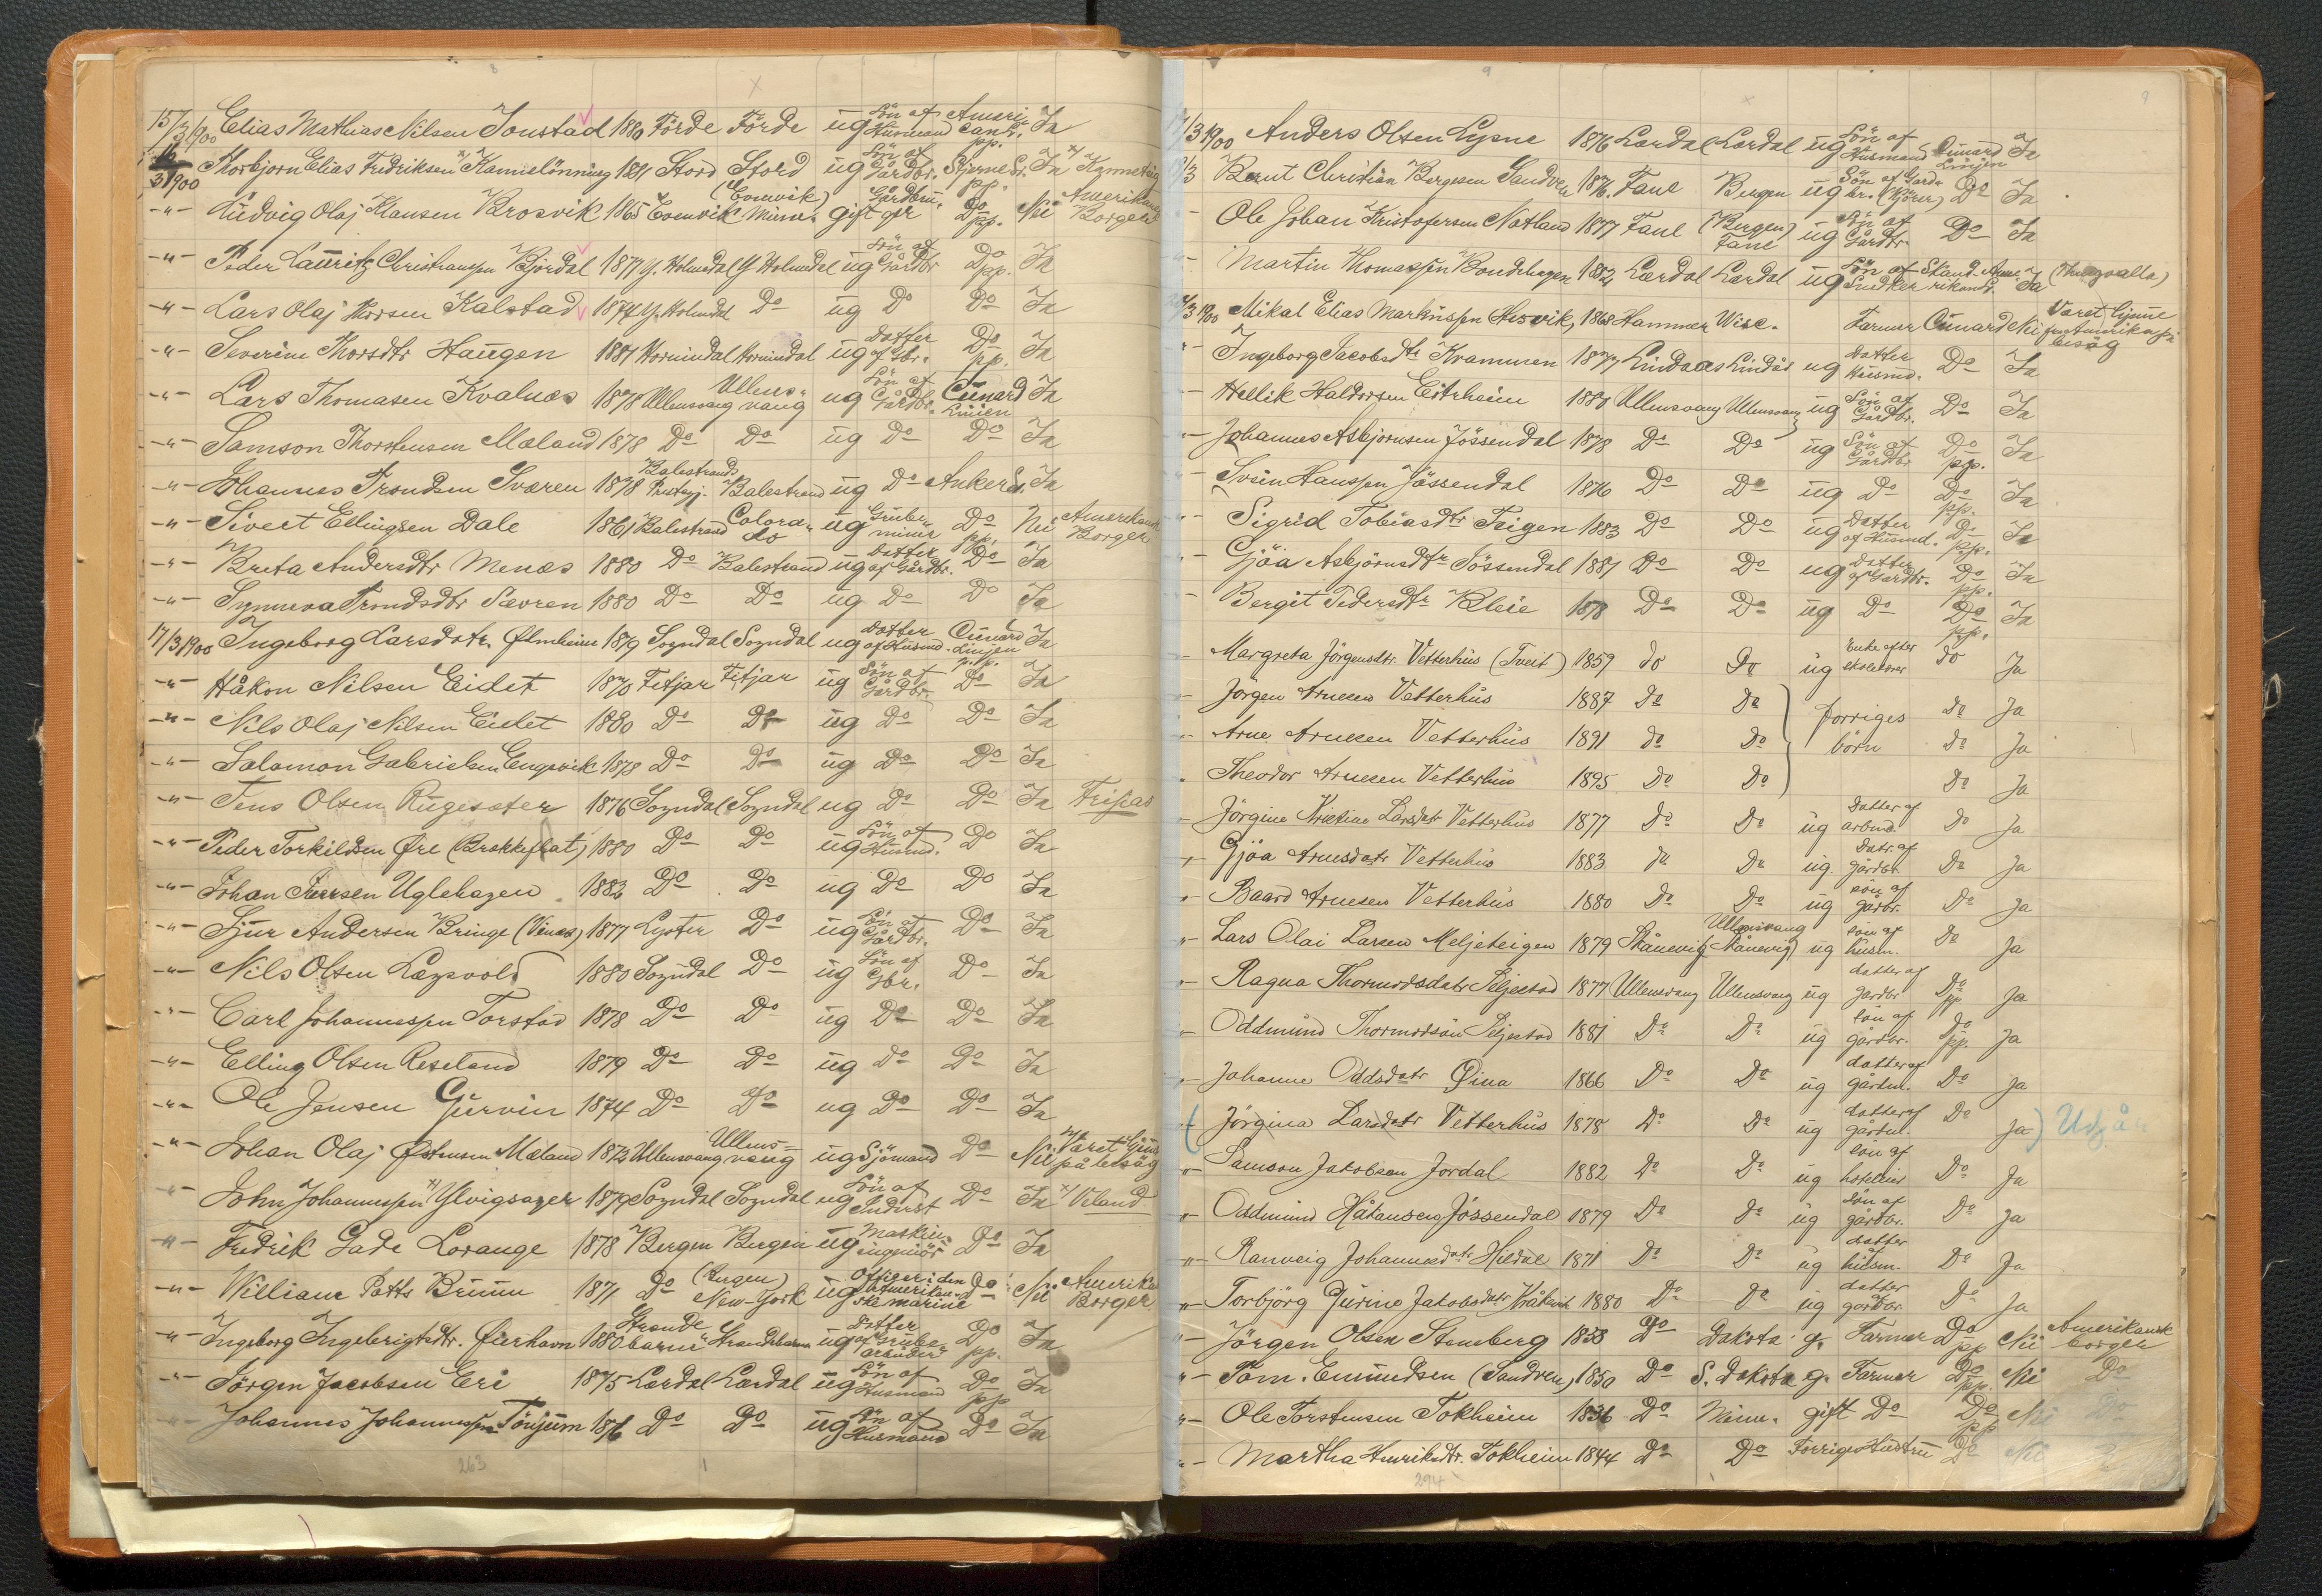 8
15/3 1900 Elias Mathias Nilsen Jonstad 1880 Förde Förde ug Sön af Husmand Ameri canl. pp. Ja
16/3 1900 Thorbjorn Elias Fredriksen x) 1881 Stord Stord ug Sön af Gårdbr. Stjernel. pp. Ja
-"- Ludvig Olaj Klausen Brosvik 1865 Evenvik (Evenvik) Minn. gift Gårdbru- ger Do pp. Nei Amerikansk Borger
-"- Peder Lauritz Christianssen Björdal 1877 Y. Holmedal Y. Holmedal ug Sön af Gårdbr Do pp. Ja
-"- Lars Olaj Thorsen Kalstad 1874 Y. Holmedal Do ug Do Do Ja
-"- Severine Thorsdtr Haugen 1881 Hornindal Hornindal ug Datter af Gbr. Do pp. Ja
-"- Lars Thomasen Kvalnes 1878 Ullensvang Ullens- vang ug Sön af Gårdbr. Cunard Linien Ja
-"- Samson Thorstensen Mæland 1878 Do Do ug Do Do Ja
-"- Johannes Trondsen Sværen 1878 Balestrands Prestegj. Balestrand ug Do Ankerl. Ja
-"- Sivert Ellingsen Dale 1861 Balestrand Colora- do ug Grube- miner Do pp. Nei Amerikansk Borger
-"- Breta Andersdtr Menæs 1880 Do Balestrand ug Datter af Gårdbr. Do Ja
-"- Synneva Trondsdtr Sværen 1880 Do Do ug Do Do Ja
17/3 1900 Ingeborg Larsdatr. Ølmheim 1879 Sogndal Sogndal ug Datter af Husmd. Cunard Linjen p.p. Ja
-"- Håkon Nilsen Eidet 1870 Fitjar Fitjar ug Sön af Gårdbr. Do Ja
-"- Nils Olaj Nilsen Eidet 1880 Do Do ug Do Do Ja
-"- Salomon Gabrielsen Engevik 1878 Do Do ug Do Do Ja
-"- Jens Olsen 1876 Sogndal Sogndal ug Do Do Ja
-"- Peder Torkildsen Øre 1880 Do Do ug Sön af Husmd. Do Ja
-"- Johan Iversen Uglehagen 1882 Do Do ug Do Do Ja
-"- Sjur Andersen Bringe (Vinæs) 1877 Lyster Do ug Sön af Gårdbr. Do Ja
-"- Nils Olsen Lægvold 1880 Sogndal Do ug Sön af Gbr. Do Ja
-"- Carl Johannessen Torstad 1878 Do Do ug Do Do Ja
-"- Elling Olsen Reseland 1879 Do Do ug Do Do Ja
-"- Ole Jensen Gurvin 1874 Do Do ug Do Do Ja
-"- Johan Olaj Østensen Mæland 1872 Ullensvang Ullens- vang ug Sjömand Do Nei Været hjemme på besög
-"- John Johannessen x) Ylvisager 1879 Sogndal Sogndal ug Sön af Do Ja x) Veland
-"- Fredrik Gade Lorange 1878 Bergen Bergen ug Maskin- ingeniör Do Ja
-"- William Potts Bruun 1871 Do (Bergen) New-York ug Officer i den Amerikan- ske marine Do Nei Amerik. Borger
-"- Ingeborg Ingebrigtsdtr. 1880 Strande- barm Strandebarm ug Datter af Grube- arbeider Do pp. Ja
-"- Jörgen Jacobsen Eri 1875 Lærdal Lærdal ug Sön af Husmand Do pp Ja
-"- Johannes Johannessen Tönjum 1876 Do Do ug Sön af Husmand Do Ja
263
9
9
17/3 1900 Anders Olsen Lysne 1876 Lærdal Lærdal ug Sön af Husmand Cunard Linjen Ja
17/3 Bernt Christian Bergesen Sandven 1876 Fane Bergen ug Sön af Gård- br. (Kjörer) Do Ja
" Ole Johan Kristofersen Natland 1877 Fane (Bergen) Fane ug Sön af Gårdbr. Do Ja
" Martin Thomassen Bondehagen 1882 Lærdal Lærdal ug Sön af Snedker Skand-Ame- rikanl. Ja (Thingvalla)
3 1900 Mikal Elias Markussen Hesvik 1868 Hammer Wisc. Farmer Cunard Nei Været hjemme fra Amerika på besög
" Ingeborg Jacobsdtr Krammen 1877 Lindaas Lindås ug Datter Husmd. Do Ja
" Hellik Haldorsen Eitrheim 1880 Ullensvang Ullensvang ug Sön af Gårdbr. Do Ja
" Johannes Asbjornsen Jössendal 1878 Do Do ug Sön af Gårdbr Do pp. Ja
" Svein Hanssen Jössendal 1876 Do Do ug Do Do pp. Ja
" Sigrid Tobiasdtr Teigen 1883 Do Do ug Datter af Husmd. Do pp. Ja
" Gjöa Asbjörnsdtr Jössendal 1881 Do Do ug Datter af Gårdbr. Do pp. Ja
" Bergit Pedersdtr Kleie 1878 Do Do ug Do Do pp. Ja
" Margreta Jörgensdtr. Vetterhus (Tveit) 1859 do Do ug Enke efter skolelærer do Ja
" Jörgen Arnesen Vetterhus 1887 Do Do forriges börn do Ja
" Arne Arnesen Vetterhus 1891 do Do do Ja
" Theodor Arnesen Vetterhus 1895 Do Do Do Ja
" Jörgine Kristine Larsdatr Vetterhus 1877 Do Do ug Datter af arbmd. Do Ja
" Gjöa Arnesdatr Vetterhus 1883 do Do ug Datr. af gårdbr Do Ja
" Baard Arnesen Vetterhus 1880 Do Do ug sön af gårbr. Do Ja
" Lars Olai Larsen Meljeteigen 1879 Skånevig Ullensvang (Skånevig) ug sön af husm. Do Ja
" Ragna Thormodsdatr Seljestad 1877 Ullensvang Ullensvang ug datter af gardbr Do pp Ja
" Oddmund Thormodsön Seljestad 1881 Do Do ug sön af gårdbr. Do pp. Ja
" Johanne Oddsdatr Øina 1866 Do Do ug datter af gårdm. Do Ja
( Jörgina Larsdatr Vetterhus 1878 Do Do ug datter af gårdm. Do Ja ) Udgår
" Samson Jakobsen Jordal 1882 Do Do ug sön af hoteleier Do Ja
" Oddmund Håkansen Jössendal 1879 Do Do ug sön af gårdbr. Do Ja
" Ranveig Johannesdatr Hildal 1871 Do Do ug datter husm. Do Ja
" Torbjörg Gurine Jakobsdatr 1880 Do Do ug datter gårdbr. Do Ja
" Jörgen Olsen Stensberg 1858 Do Dakota g. Farmer Do pp Nei Amerikansk borger
" Tom. Emundsen (Sandven) 1850 Do S. Dakota g. Farmer Do pp. Nei Do
" Ole Torstensen Tokheim 1836 Do Minn. gift Do Do pp Nei Do
" Martha Henriksdtr. Tokheim 1844 Do Do Forriges Hustru Do Nei
294